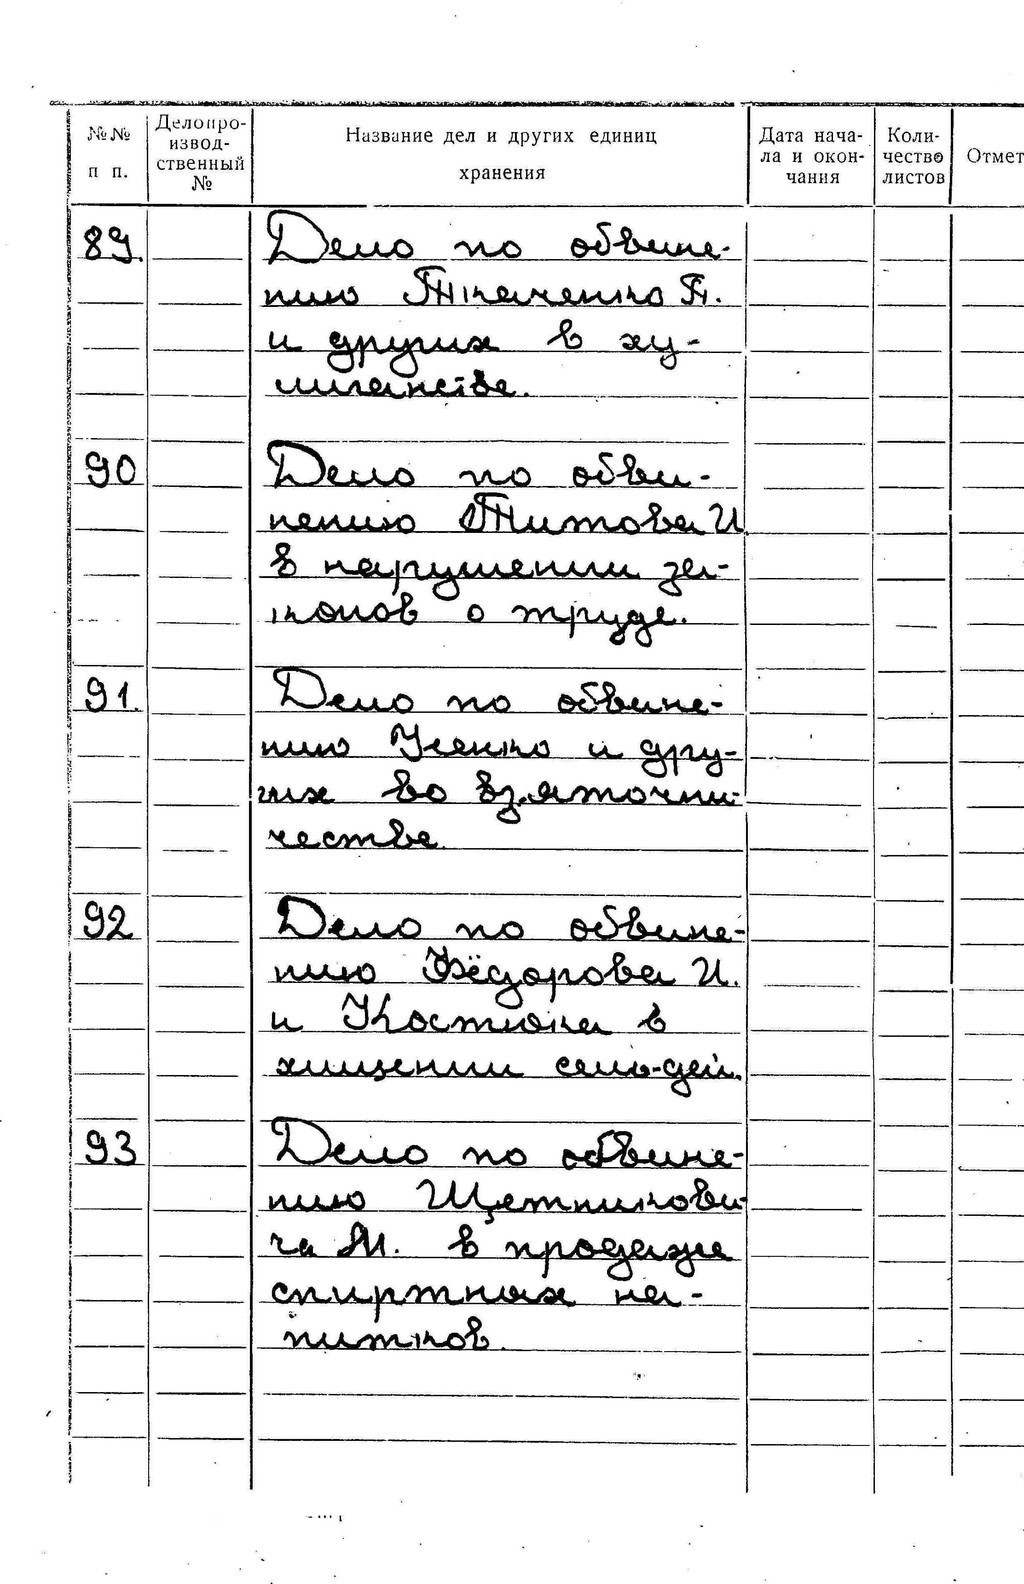 №№ п п.
Делопро-
извод-
ственный
№
Название дел и других единиц
хранения
Дата нача-
ла и окон-
чания
Коли-
чество
листов
Отмет
89. Дело по обвине-
нию Ткаченко П.
и других в ху-
лиганстве.
90 Дело по обви-
нению Титова И
в нарушении за-
конов о труде.
91. Дело по обвине-
нию Усенко и дру-
гих во взяточни-
честве.
92 Дело по обвине-
нию Фёдорова И.
и Костюка в
хищении сельдей.
93 Дело по обвине-
нию Щетникови-
ча М. в продаже
спиртных на-
питков.